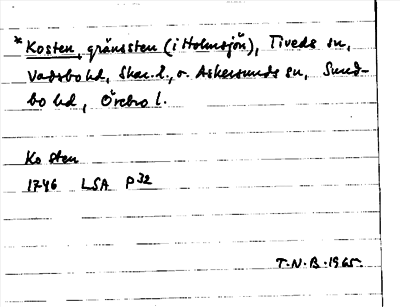 * Kosten, gränssten (i Holmsjön), Tiveds sn,
Vadsbo hd, Skar.l., o. Askersunds sn, Sund-
bo hd, Örebro l.
Kosten
1746 LSA P32
T.N.B. 1965.